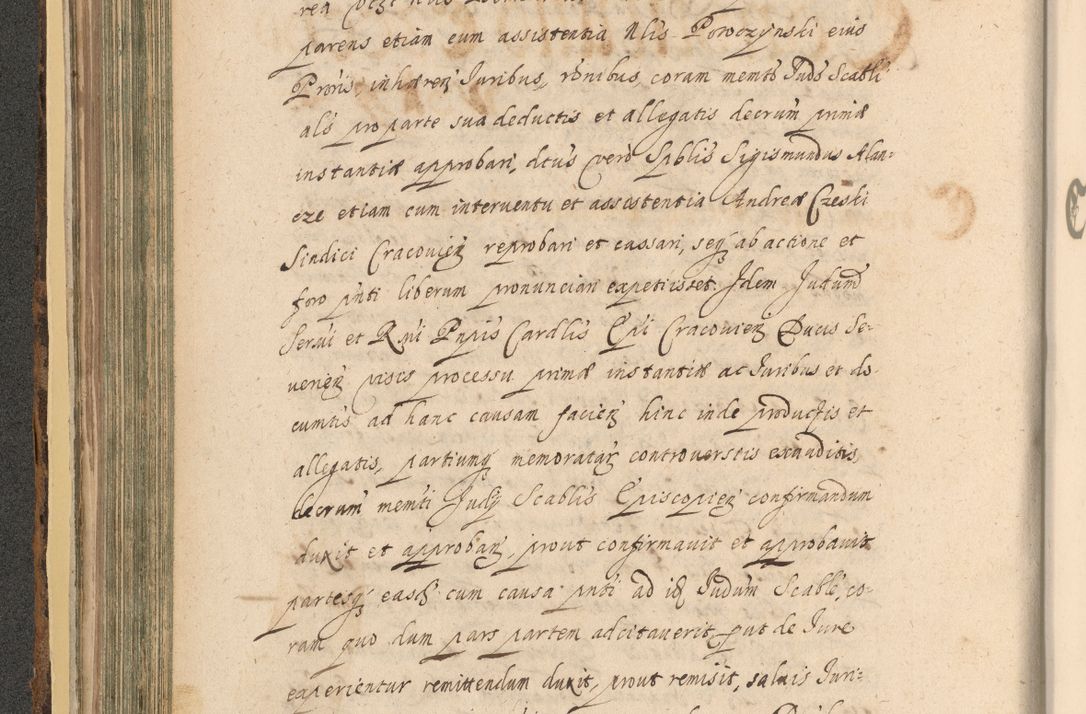 parens etiam cum assistentia Nlis Poroczynski eius
Proris, inhæren Juribus, rōnibus, coram memto Judō Scabli
als pro parte sua deductis et allegatis decrum primæ
instantiæ approbari, dtus vero Spblis Sigismundus Alan-
eze etiam cum interventu et assistentia Andreæ Czeski
Sindici Cracovien reprobari et cassari, seq ab actione et
foro pnti liberum pronunciari expetiisset. Idem Judum
Sermi et Rmi Pnpis Cardlis Epi Cracovien Ducis Se-
verien visis processu primæ instantiæ ac Juribus et do
cumtis ad hanc causam facien hinc inde productis et
allegatis, partiumq memoratar controversiis exauditis,
decrum memti Judij Scablis Episcopien confirmandum
duxit et approban, prout confirmavit et approbavit
partesq easd cum causa pnti ad id Judum Scable, co-
ram quo dum pars partem adcitaverit, put de Jure
experientur remittendum duxit, prout remisit, salvis Juri-